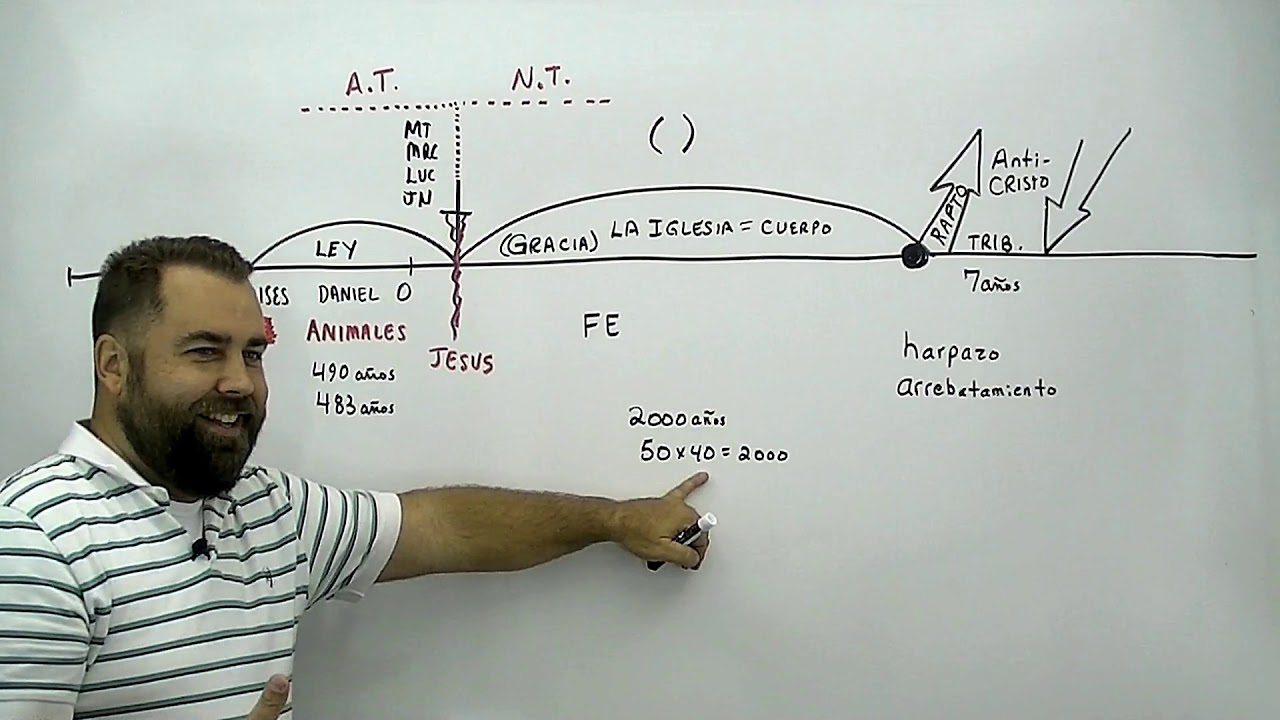 A.T. N.T.
MT
MRC
LUC
JN
( )
LEY
(GRACIA) LA IGLESIA = CUERPO
RAPTO
Anti-
CRISTO
TRIB.
7 años
DANIEL O
ANIMALES
490 años
483 años
JESUS
FE
2000 años
50 x 40 = 2000
harpazo
arrebatamiento